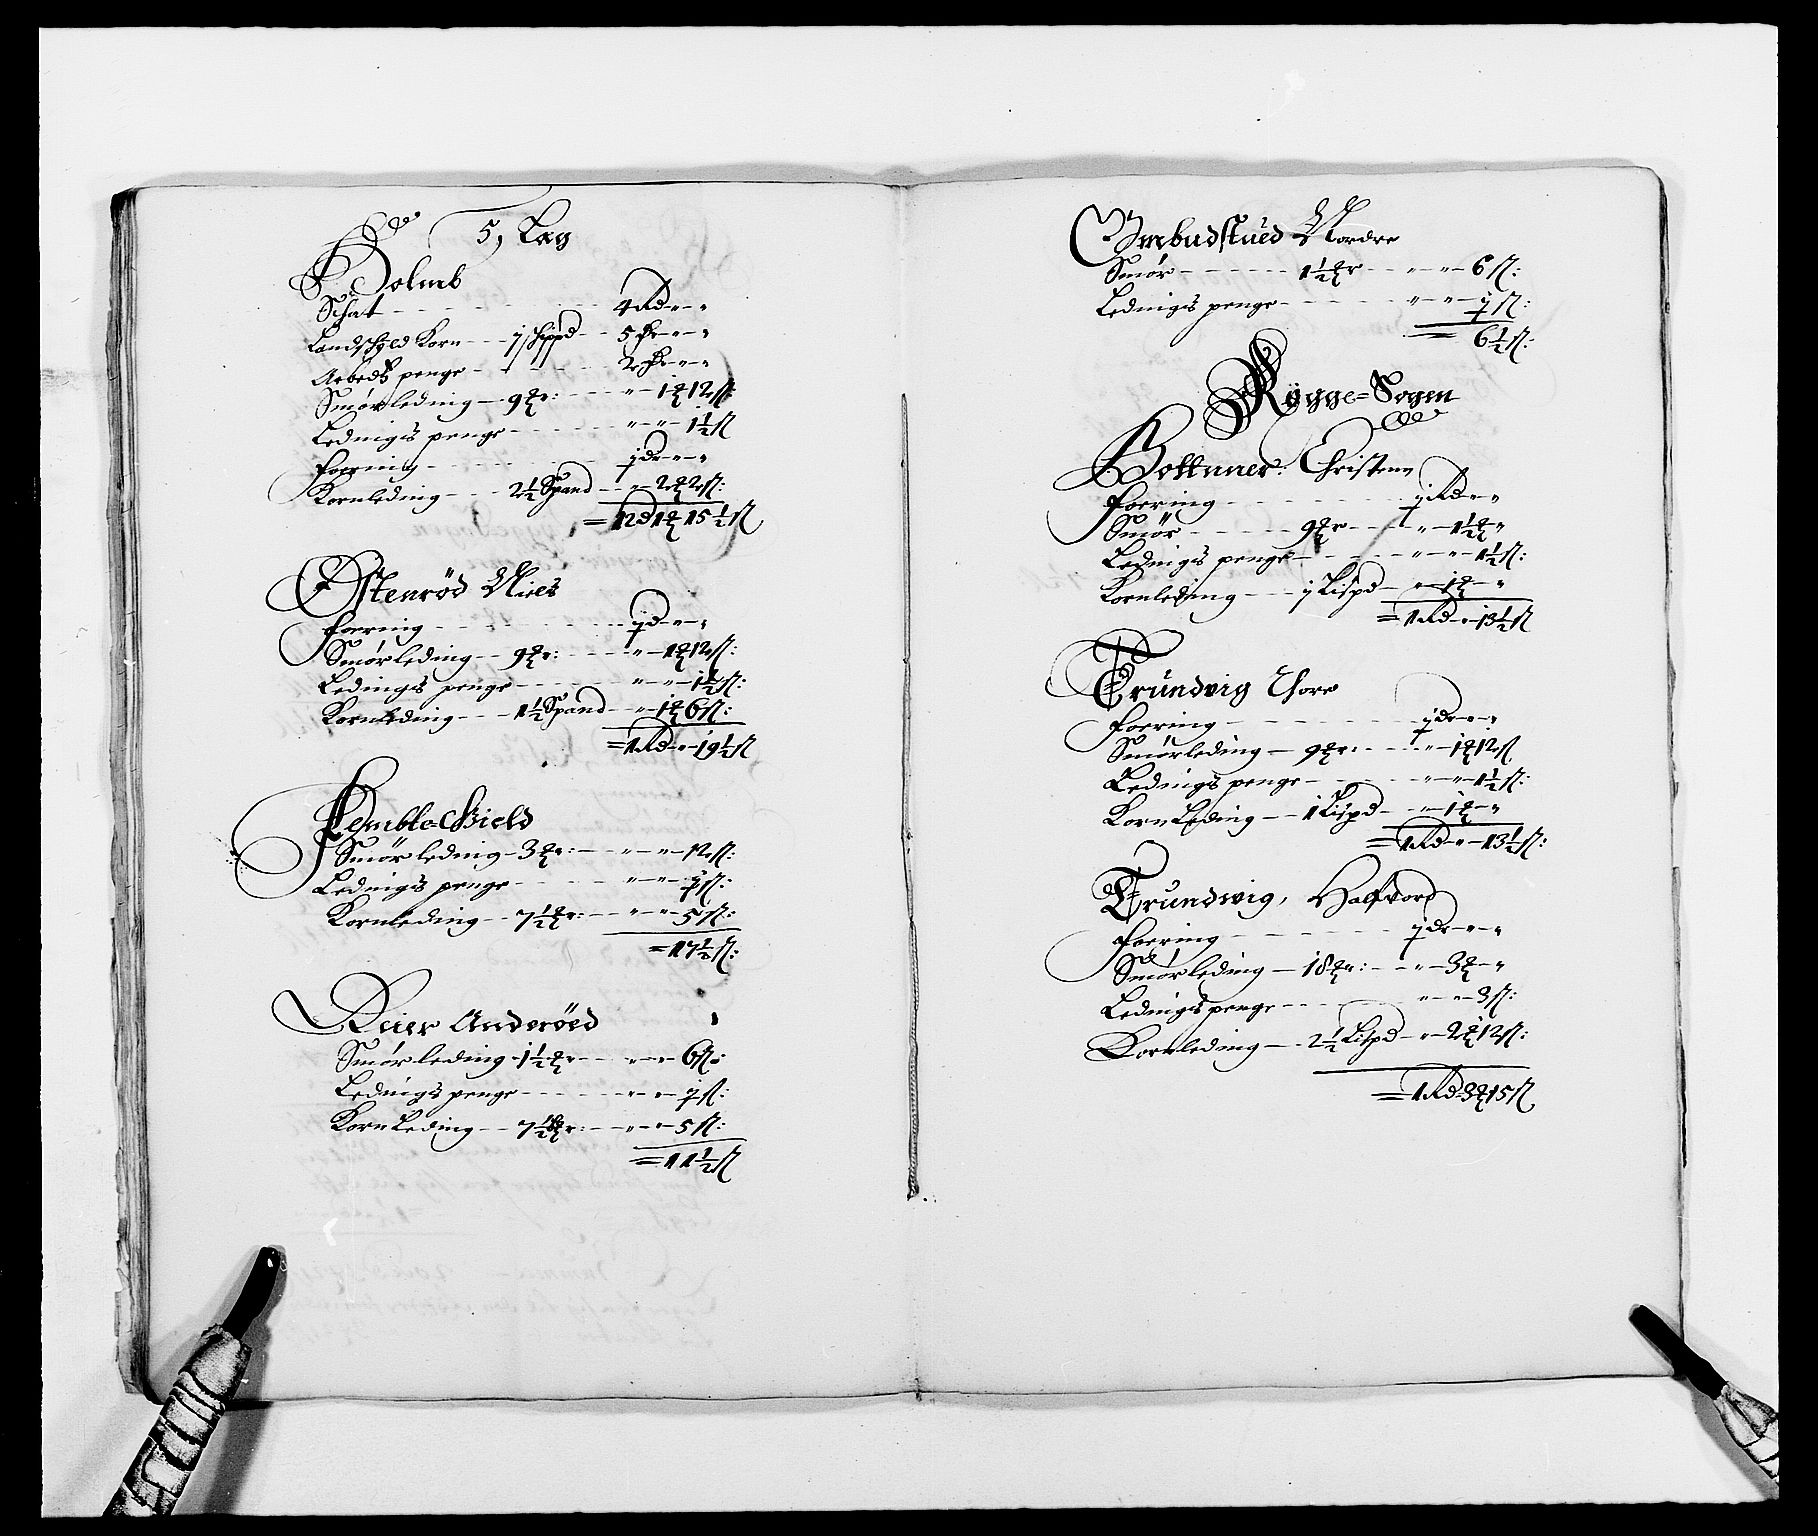 5, Læg
Holmb
Schat - - - 4 Rd - " - "
Landschyld Korn - - j schippd - - 5
Arbeds penge - - - 2
Smørleding - 9 - " - 1 12 ß:
Ledings penge - - - " - " - 1½ ß
Foering - - - j d - " - "
Kornleding - - 2½ Spand - - " - 2 2 ß:
= 12 d 1 15½ ß
Østenrød Niels
Foering - - - j d - " - "
Smørleding - - 9 - " - 1 12 ß:
Ledings penge - - - " - " - 1½ ß:
Kornleding - - 1½ Spand - - " - 1 6 ß:
= 1 Rd - " - 19½ ß
Smørleding - 3 - " - " - 12 ß:
Ledings penge - - - " - " - ½ ß:
Kornleding - - 7½ - " - " - 5 ß:
= 17½ ß:
Reier Anderøed
Smørleding 1½ - " - " - 6 ß:
Ledings penge - - - " - " - ½ ß:
Kornleding - - 7½ - " - " - 5 ß:
= 11½ ß
Ombudstued Nordre
Smør - - - 1½ - - " - " - 6 ß:
Ledings penge - - - " - " - ½ ß:
= 6½ ß:
Rygge-Sogen
Bottnner: Christenn
Foering - - - j Rd - " - "
Smør - - - 9 - - " - 1½ - "
Ledings penge - - - " - " - 1½ ß:
Kornleding - - - j Lispd - " - 1 - "
= 1 Rd - " - 13½ ß
Trundvig Thore
Foering - - - j d - " - "
Smørleding - 9 - - " - 1 12 ß
Ledings penge - - - " - " - 1½ ß:
Kornleding - - 1 Lispd - " - 1 - "
= 1 Rd - " - 13½ ß:
Trundwig, Halfvord
Foering - - - j d - " - "
Smørleding - 18 - - " - 3 - "
Ledings penge - - - " - " - 3 ß:
Kornleding - 2½ Lispd - " - 2 12 ß:
= 1 Rd 3 15 ß